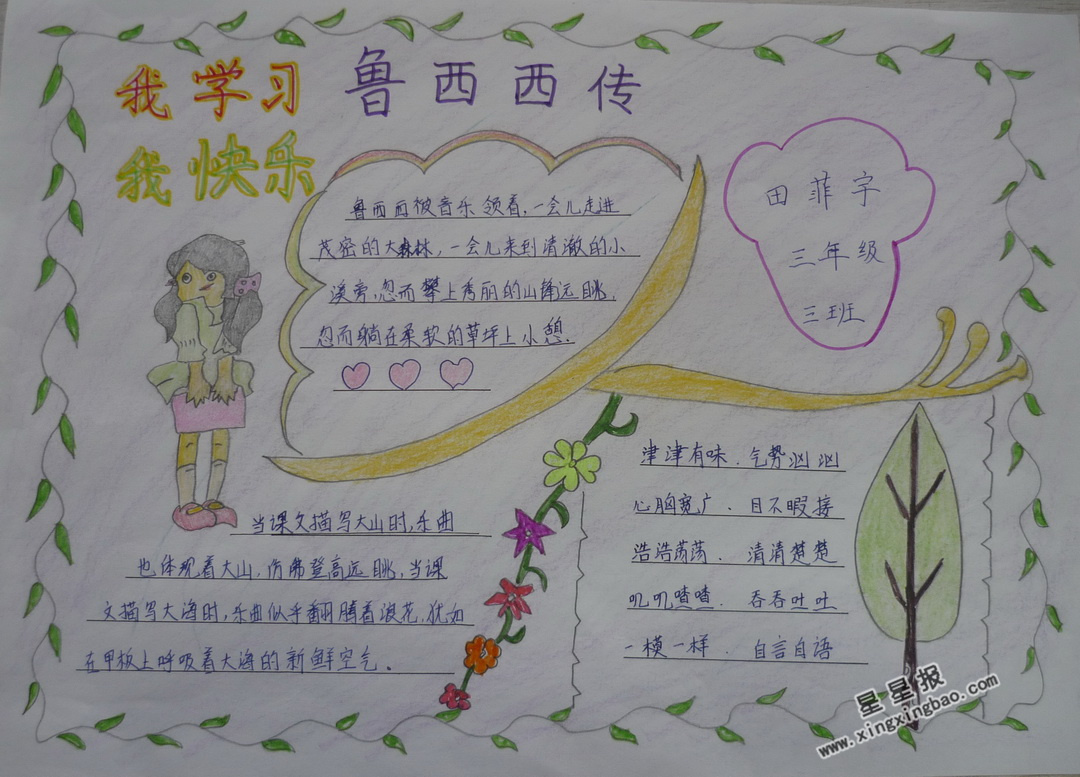 我学习 鲁西西传
我快乐
鲁西西被音乐领着,一会儿走进
茂密的大森林,一会儿来到清澈的小
溪旁,忽而攀上秀丽的山锋远眺,
忽而躺在柔软的草坪上小憩.
田菲宇
三年级
三班
当课文描写大山时,乐曲
也体现着大山,仿佛登高远眺,当课
文描写大海时,乐曲似乎翻腾着浪花,犹如
在甲板上呼吸着大海的新鲜空气.
津津有味.气势汹汹
心胸宽广.目不暇接
浩浩荡荡.清清楚楚
叽叽喳喳.吞吞吐吐
一模一样.自言自语
星星报
www.xingxingbao.com